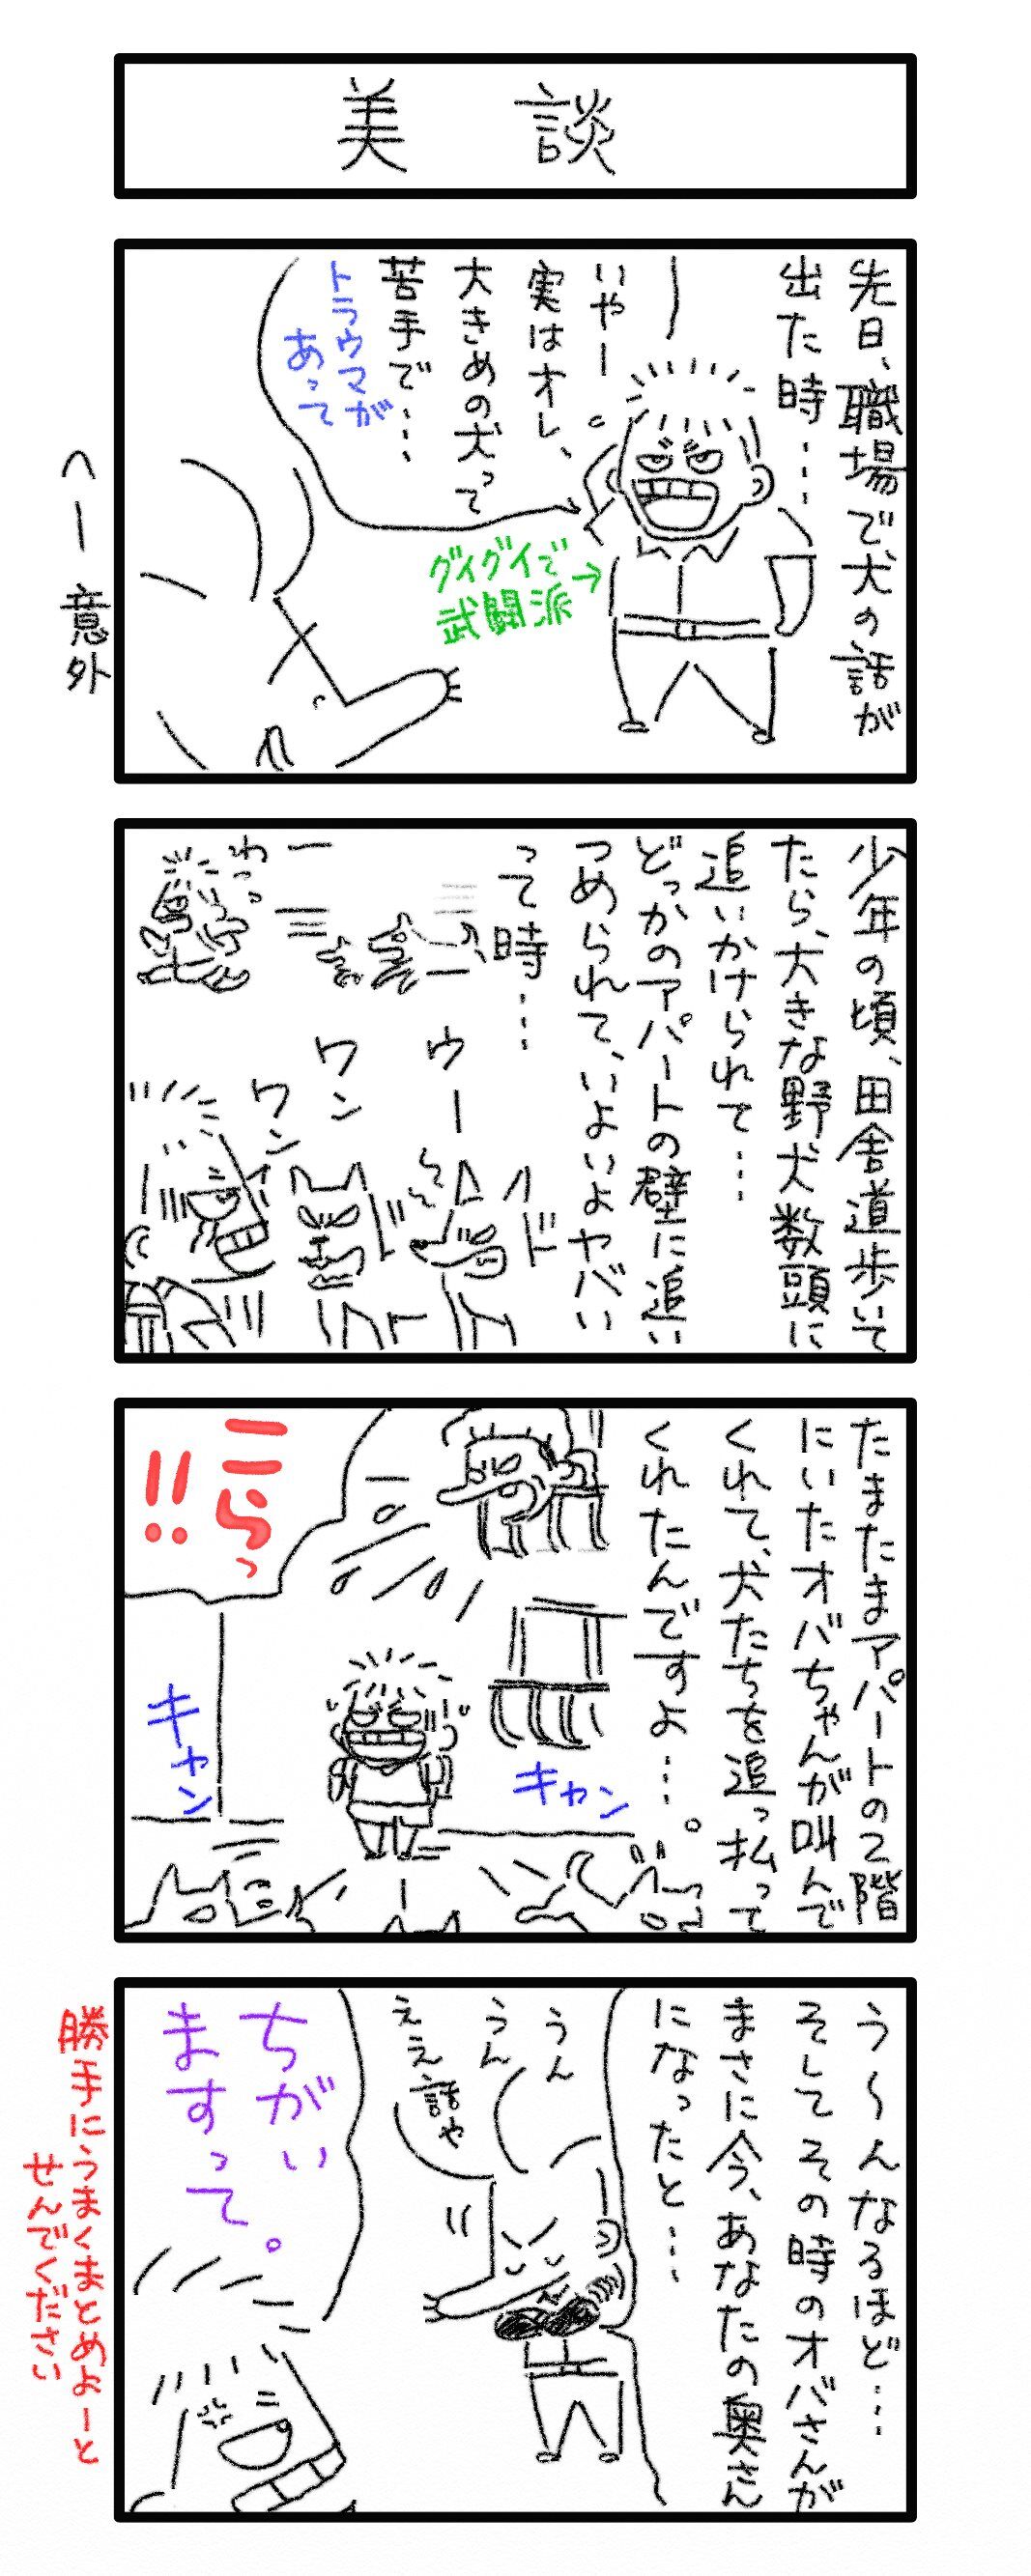 美談
先日、職場で犬の話が
出た時…
いやー
実はオレ、
大きめの犬って
苦手で…
トラウマが
あって
グイグイで
武闘派
へー意外
少年の頃、田舎道歩いて
たら、大きな野犬数頭に
追いかけられて…
どっかのアパートの壁に追い
つめられて、いよいよヤバい
って時…
わっ
ウー
ワン
ワン
たまたまアパートの2階
にいたオバちゃんが叫んで
くれて、犬たちを追っ払って
くれたんですよ…。
こらっ
!!
キャン
キャン
う〜んなるほど…
そしてその時のオバさんが
まさに今、あなたの奥さん
になったと…
うん
うん
ええ話や
ちがい
ますって。
勝手にうまくまとめよーと
せんでください